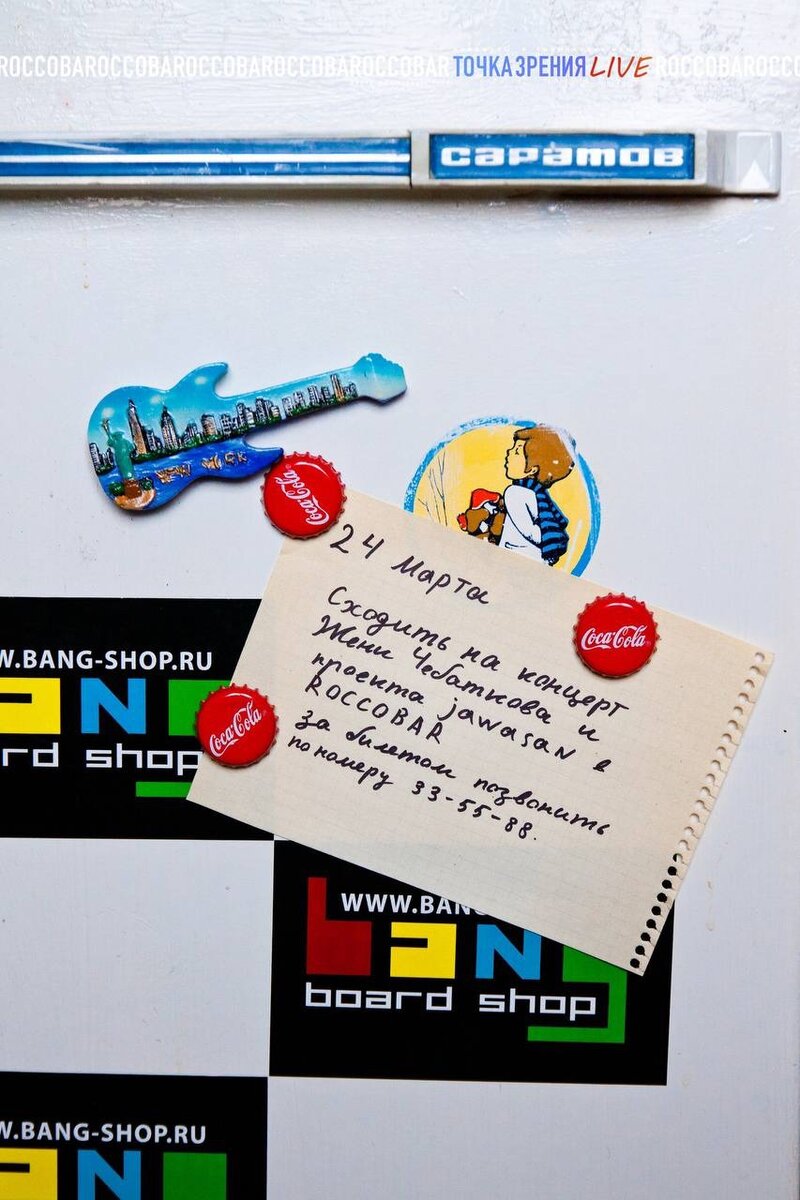 ROCCOBAROCCOBAROCCOBAROCCOBAROCCOBAR ТОЧКА ЗРЕНИЯ LIVE ROCCOBAROCCO
саратов
NEW YORK
Coca-Cola
24 марта
Сходить на концерт
Жени Чебаткова и
проекта jawasan в
ROCCOBAR
за билетом позвонить
по номеру 33-55-88.
Coca-Cola
Coca-Cola
W.BANG-SHOP.RU
rd shop
WWW.BAN
bang
board shop
W.BANG-SHOP.RU